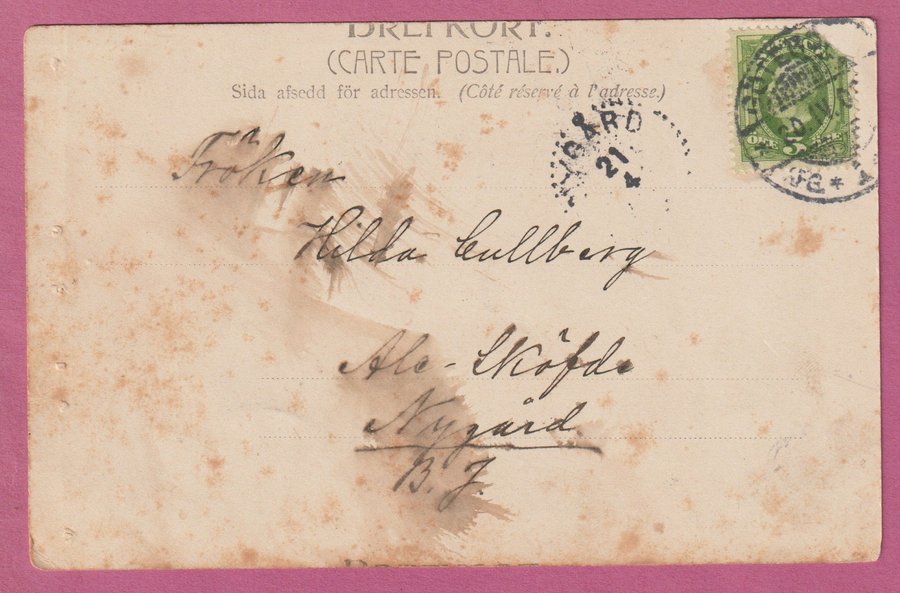 BREFKORT.
(CARTE POSTALE.)
Sida afsedd för adressen. (Côté réservé à l'adresse.)
YGÅRD
21
4
5
Fröken
Hilda Cullberg
Ale-Sköfde
Nygård
B. J.